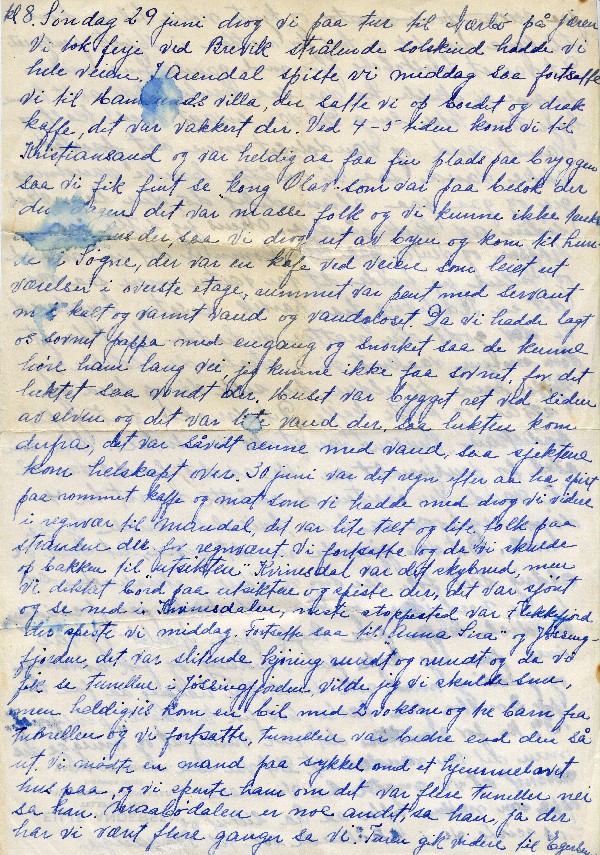 kl 8. Søndag 29 juni drog vi paa tur til Nærbø på Jæren
Vi tok ferje ved Brevik strålende solskind hadde vi
hele veien. I Arendal spiste vi middag saa fortsatte
vi til villa, der satte vi op bordet og drak
kaffe, det var vakkert der. Ved 4-5 tiden kom vi til
Kristiansand og var heldig aa faa fin plads paa bryggen
saa vi fik fint se kong Olav som var paa besøk der
det var masse folk og vi kunne ikke
der saa vi drog ut av byen og kom til
i Søgne, der var en kafe ved veien som leiet ut
værelser i øverste etage, rummet var pent med servant
m kalt og varmt vand og vandcloset. Da vi hadde lagt
os sovnet pappa med engang og snorket saa de kunne
høre ham lang vei. jeg kunne ikke faa sovnet, for det
luktet saa vondt der. Huset var bygget ret ved siden
av elven og det var lite vand der, saa lukten kom
derfra, det var såvidt renne med vand, saa sjektene
kom helskapt over. 30 juni var det regn efter aa ha spist
paa rommet kaffe og mat som vi hadde med drog vi videre
i regnvær til Mandal det var lite telt og lite folk paa
stranden for regnværet vi fortsatte og da vi skulde
op bakken til utsikten Kvinesdal var det skybrud, men
vi dekket bord paa utsikten og spiste der, det var sjønt
og se ned i Kvinesdalen, neste stoppested var Flekkefjord
der spiste vi middag. Fortsette saa til Anna Sira og Jøssing-
fjorden, det var slitende kjøring rundt og rundt og da vi
fik se tunellen i Jøssingfjorden vilde jeg vi skulde snu,
men heldigvis kom en bil med 2 voksne og tre barn fra
tunellen og vi fortsatte, tunellen var bedre end den så
ut vi møtte en mand paa sykkel med et hjemmelavet
hus paa, og vi spurte ham om det var flere tuneller nei
sa han. Maabødalen er noe andet, sa han, ja der
har vi vært flere ganger sa vi. Turen gik videre til